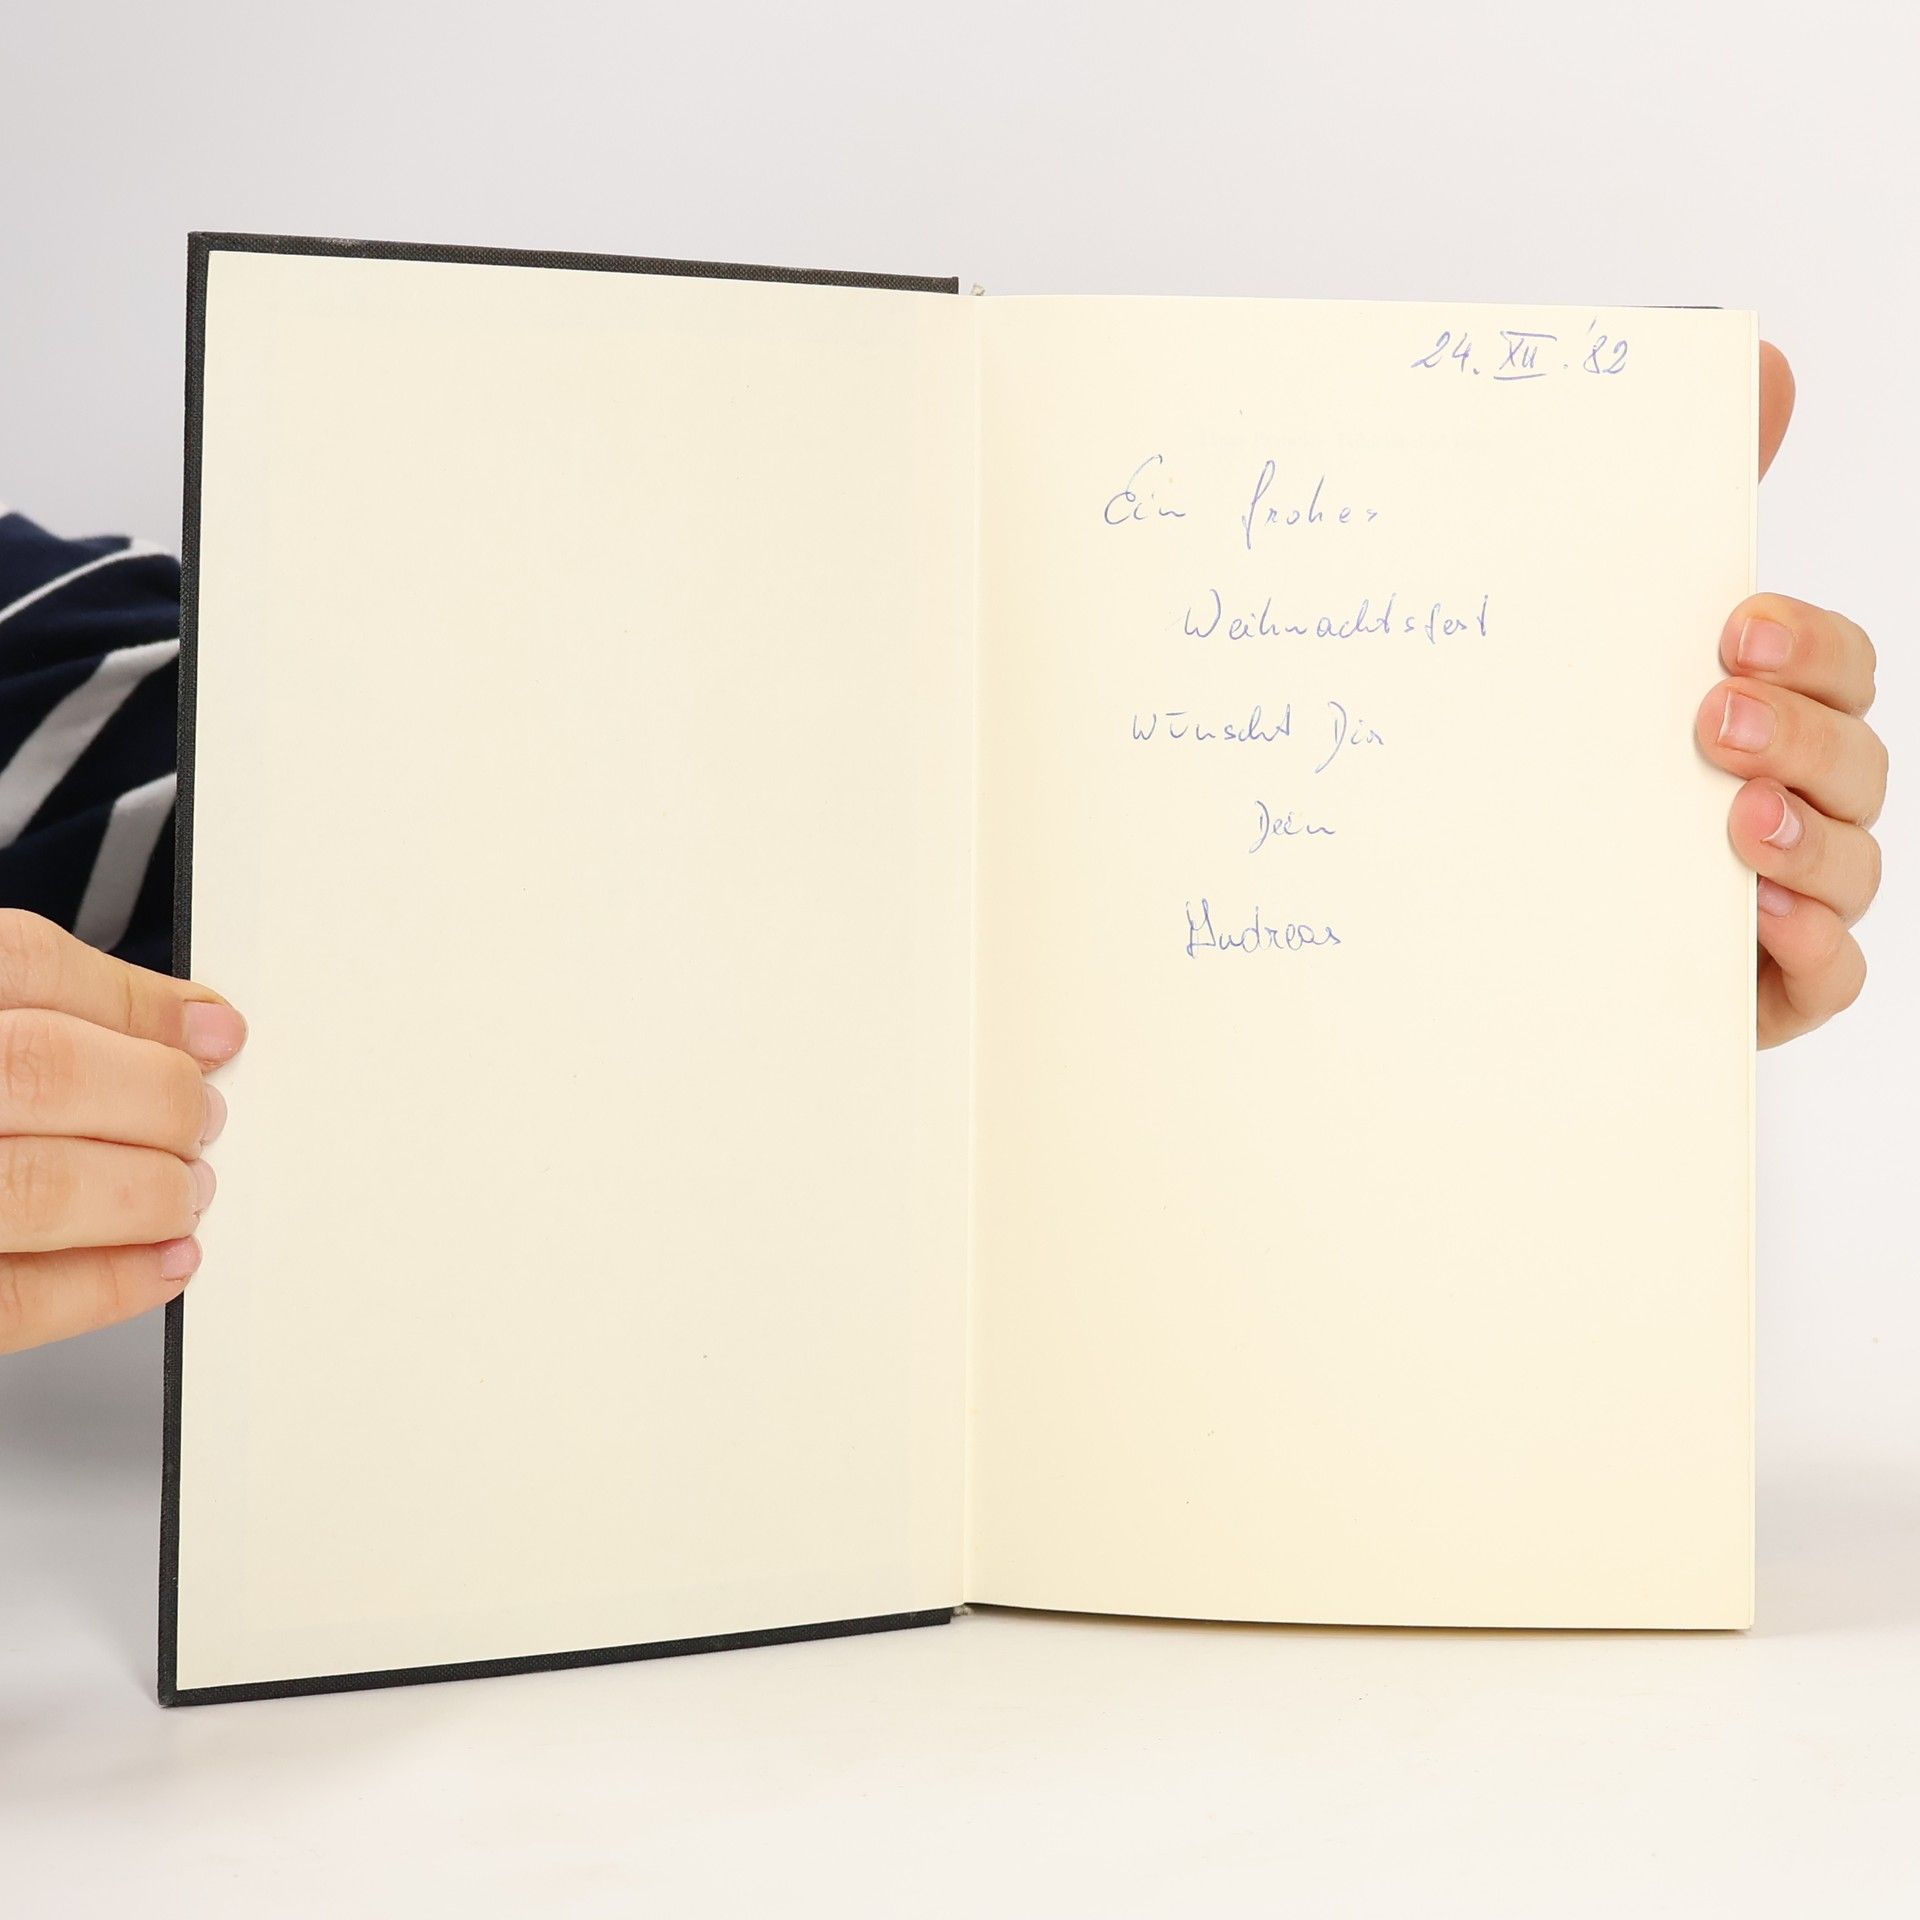 24. XII. '82
Ein frohes
Weihnachtsfest
wünscht Dir
Dein
Andreas